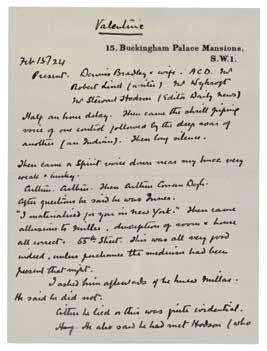 Valentine
15. Buckingham Palace Mansions,
S.W.1.
Feb 15/24
Present. Dennis Bradley & wife. A.C.D. Mr
Robert Lind (writer) Mr
Mr Stewart Hodson (Editor Daily News)
Half an hour delay. Then came the shrill piping
voice of one control followed by the deep roar of
another (an Indian). Then long silence.
Then came a Spirit voice down near my knee very
weak & husky.
Arthur. Arthur. Then Arthur Conan Doyle.
After questions he said he was Innes.
"I materialised for you in New York." Then came
allusions to Miller, description of room & house
all correct. 55th Street. This was all very good
indeed, unless perchance the medium had been
present that night.
I asked him afterwards if he knew Miller.
He said he did not.
Either he lied or this was quite evidential.
He also said he had met Hodson (who